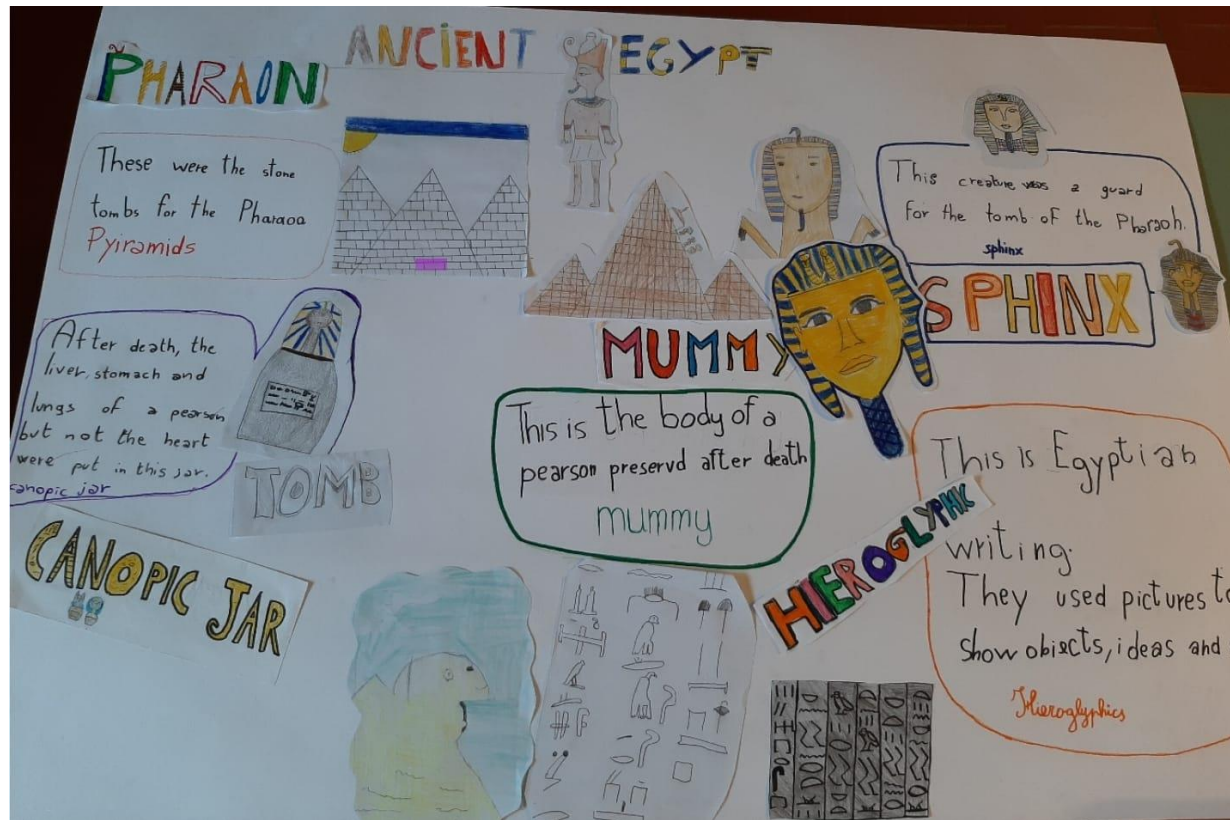 ANCIENT EGYPT
PHARAON
These were the stone
tombs for the Pharaoa
Pyiramids
This creature was a guard
for the tomb of the Pharaoh.
sphinx
SPHINX
After death, the
liver, stomach and
lungs of a pearson
but not the heart
were put in this jar.
canopic jar
TOMB
CANOPIC JAR
MUMMY
This is the body of a
pearson preservd after death
mummy
HIEROGLYPHIC
This is Egyptian
writing.
They used pictures to
show objects, ideas and
Hieroglyphics